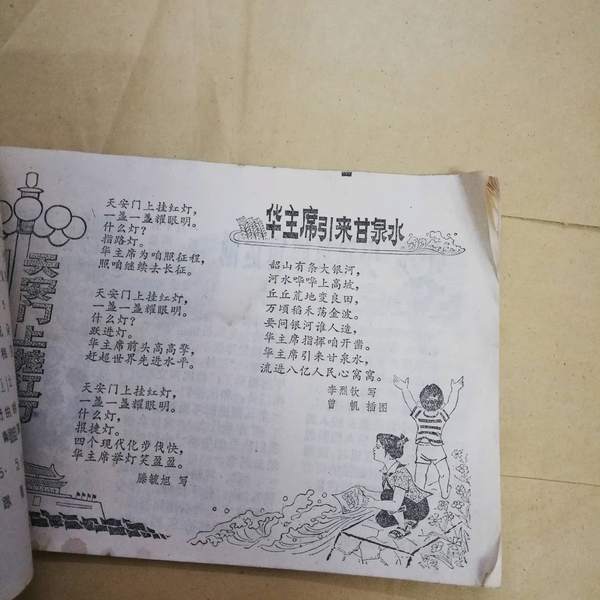 天安门上挂红灯
天安门上挂红灯，
一盏一盏耀眼明。
什么灯？
指路灯。
华主席为咱照征程，
照咱继续去长征。
天安门上挂红灯，
一盏一盏耀眼明。
什么灯？
跃进灯。
华主席前头高高擎，
赶超世界先进水平。
天安门上挂红灯，
一盏一盏耀眼明。
什么灯，
报捷灯。
四个现代化步伐快，
华主席举灯笑盈盈。
滕毓旭 写
华主席引来甘泉水
韶山有条大银河，
河水哗哗上高坡，
丘丘荒地变良田，
万顷稻禾荡金波。
要问银河谁人造，
华主席指挥咱开凿。
华主席引来甘泉水，
流进八亿人民心窝窝。
李烈钦 写
曾 帆 插图